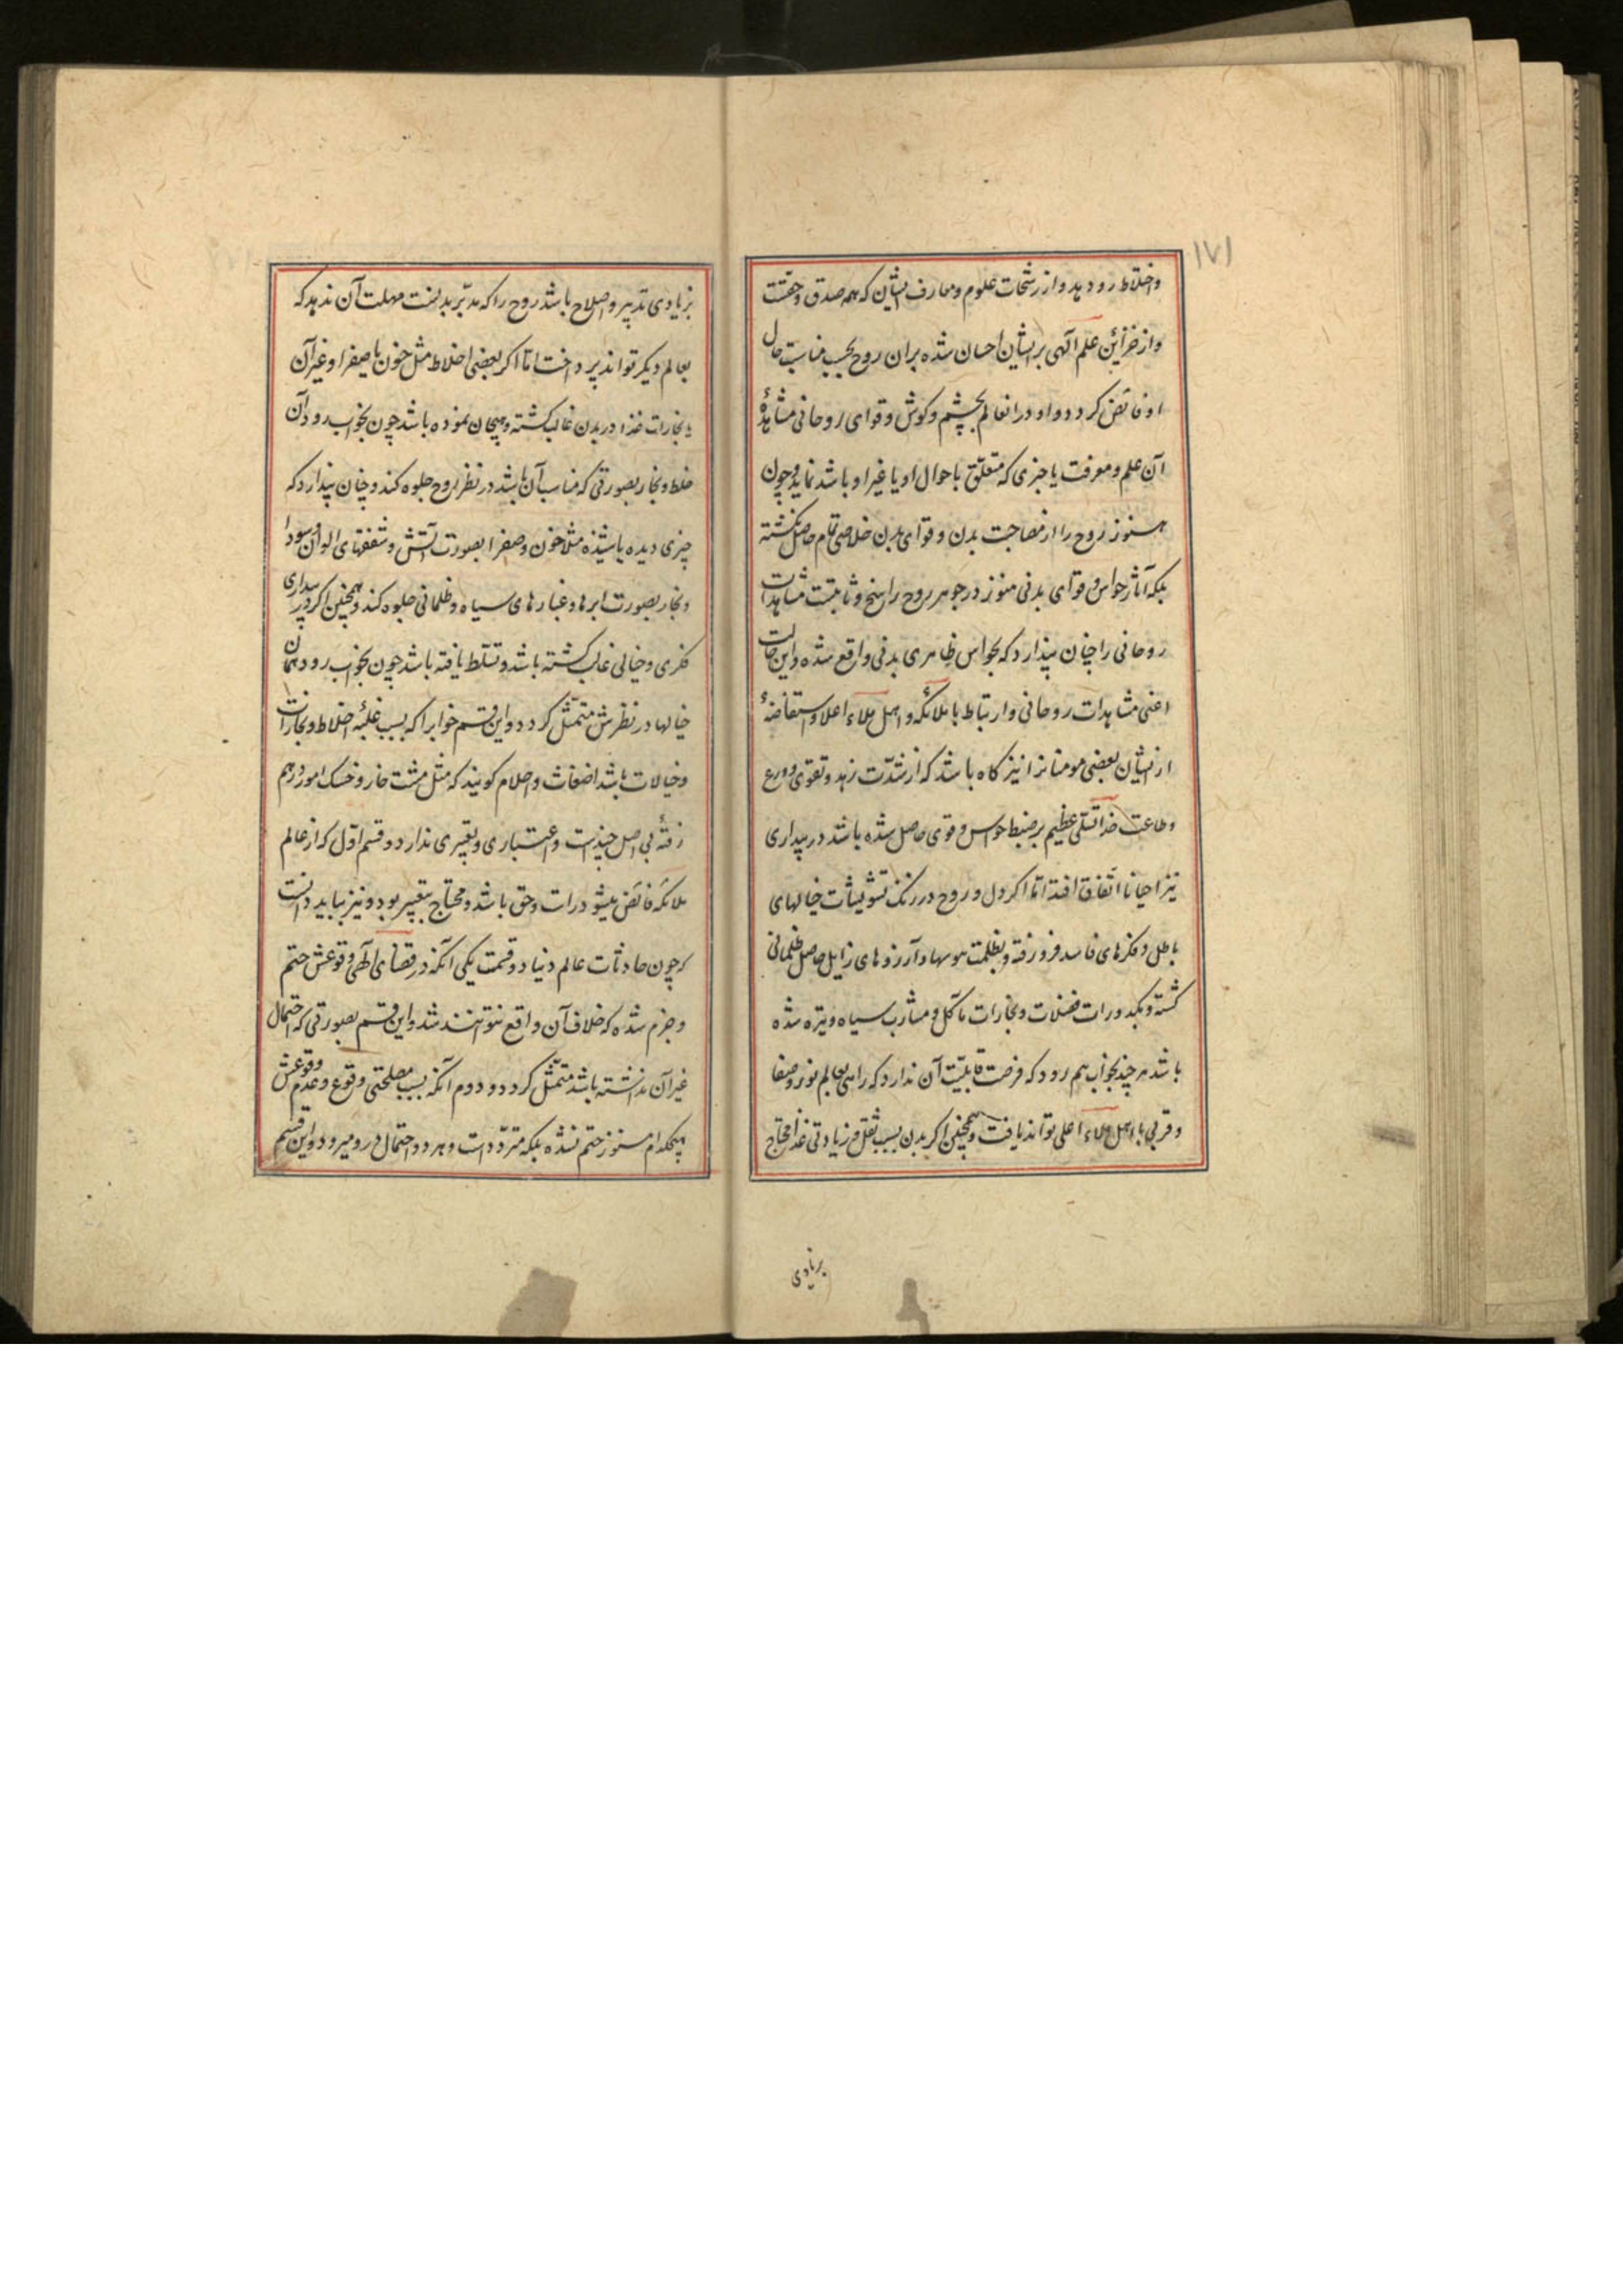 ۱۷۱
واختلاط رو دهد و از رشحات علوم و معارف ایشان که همه صدق و حقست
و از خزائن علم آلهی بر ایشان احسان شده بران روح بحسب مناسبت حال
او فائض کردد و او در انعالم بچشم و کوش و قوای روحانی مشاهدهٔ
آن علم و معرفت یا چیزی که متعلق باحوال او یا غیر او باشد نماید و چون
هنوز روح را از مصاحبت بدن و قوای بدن خلاصی تام حاصل نکشته
بلکه آثار حواس و قوای بدنی هنوز در جوهر روح راسخ و ثابتست مشاهدات
روحانی را چنان پندارد که بحواس ظاهری بدنی واقع شده و این حالت
اعنی مشاهدات روحانی و ارتباط با ملائکه و اهل ملاء اعلا و استفاضهٔ
از ایشان بعضی مومنانرا نیز کاه باشد که از شدّت زهد و تقوی و ورع
وطاعت خدا تسلّطی عظیم بر ضبط حواس و قوی حاصل شده باشد در بیداری
نیز احیانا اتّفاق افتد امّا اکر دل و روح در زنک تشویشات خیالهای
باطل و فکرهای فاسد فرو رفته و بظلمت هوسها و آرزوهای زایل حاصل ظلمانی
کشته و بکدورات فضلات و بخارات مآکل و مشارب سیاه و تیره شده
باشد هر چند بخواب هم رود که فرصت قابلیّت آن ندارد که راهی بعالم نور و صفا
و قربی با اهل ملاء اعلی تواند یافت و همچنین اکر بدن بسبب ثقل و زیادتی غذا محتاج
بزیادی
بزیادی تدبیر و اصلاح باشد روح را که مدبّر بدنست مهلت آن ندهد که
بعالم دیکر تواند پرداخت امّا اکر بعضی اخلاط مثل خون یا صفرا و غیر آن
یا بخارات غذا در بدن غالب کشته و هیجان نموده باشد چون بخواب رود آن
خلط و بخار بصورتی که مناسب آن باشد در نظر روح جلوه کند و چنان پندارد که
چیزی دیده یا شنیده مثلا خون و صفرا بصورت آتش و شفقهای الوان و سودا
و بخار بصورت ابرها و غبارهای سیاه و ظلمانی جلوه کند و همچنین اکر در بیداری
فکری و خیالی غالب کشته باشد و تسلّط یافته باشد چون بخواب رود همان
خیالها در نظرش متمثّل کردد و این قسم خوابرا که بسبب غلبهٔ اخلاط و بخارات
و خیالات باشد اضغاث و احلام کویند که مثل مشت خار و خسک امور درهم
رفتهٔ بی اصل چندیست و اعتباری و تعبیری ندارد و قسم اوّل که از عالم
ملائکه فائض میشود راست و حق باشد و محتاج بتعبیر بود و نیز بباید دانست
که چون حادثات عالم دنیا دو قسمت یکی آنکه در قضای آلهی وقوعش حتم
و جزم شده که خلاف آن واقع نتوانند شد و این قسم بصورتی که احتمال
غیر آن نداشته باشد متمثّل کردد و دوم آنکه بسبب مصلحتی وقوع و عدم وقوعش
هیچکدام هنوز حتم نشده بلکه متردّد است و هر دو احتمال در و میرود و این قسم